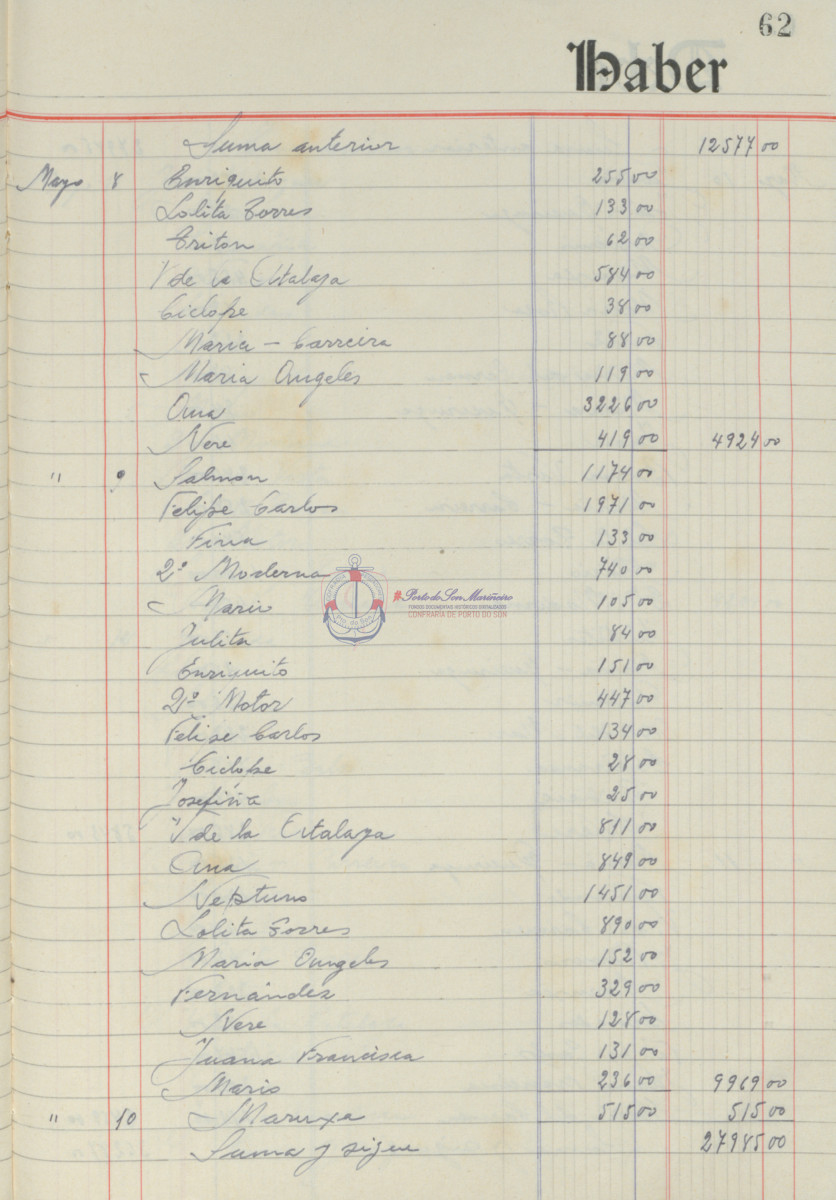 62
Haber
Suma anterior 12577 00
Mayo 8 Enriquito 255 00
Lolita Torres 133 00
Triton 62 00
V de la Atalaya 584 00
Ciclope 38 00
Maria - Carreira 88 00
Maria Angeles 119 00
Ana 3226 00
Nere 419 00 4924 00
" 9 Salmon 1174 00
Felipe Carlos 1971 00
Fina 133 00
2º Moderna 740 00
Mario 105 00
Julita 84 00
Enriquito 151 00
2º Motor 447 00
Felipe Carlos 134 00
Ciclope 28 00
Josefina 25 00
V de la Atalaya 811 00
Ana 849 00
Neptuno 1451 00
Lolita Torres 890 00
Maria Angeles 152 00
Fernández 329 00
Nere 128 00
Juana Francisca 131 00
Mario 236 00 9969 00
" 10 Maruxa 515 00 515 00
Suma y sigue 27985 00
#Porto do Son Mariñeiro
FONDOS DOCUMENTAIS HISTÓRICOS DIXITALIZADOS
CONFRARÍA DE PORTO DO SON